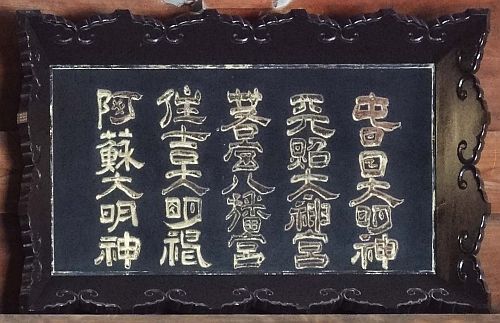 春日大明神
天照大神宮
若宮八幡宮
住吉大明神
阿蘇大明神